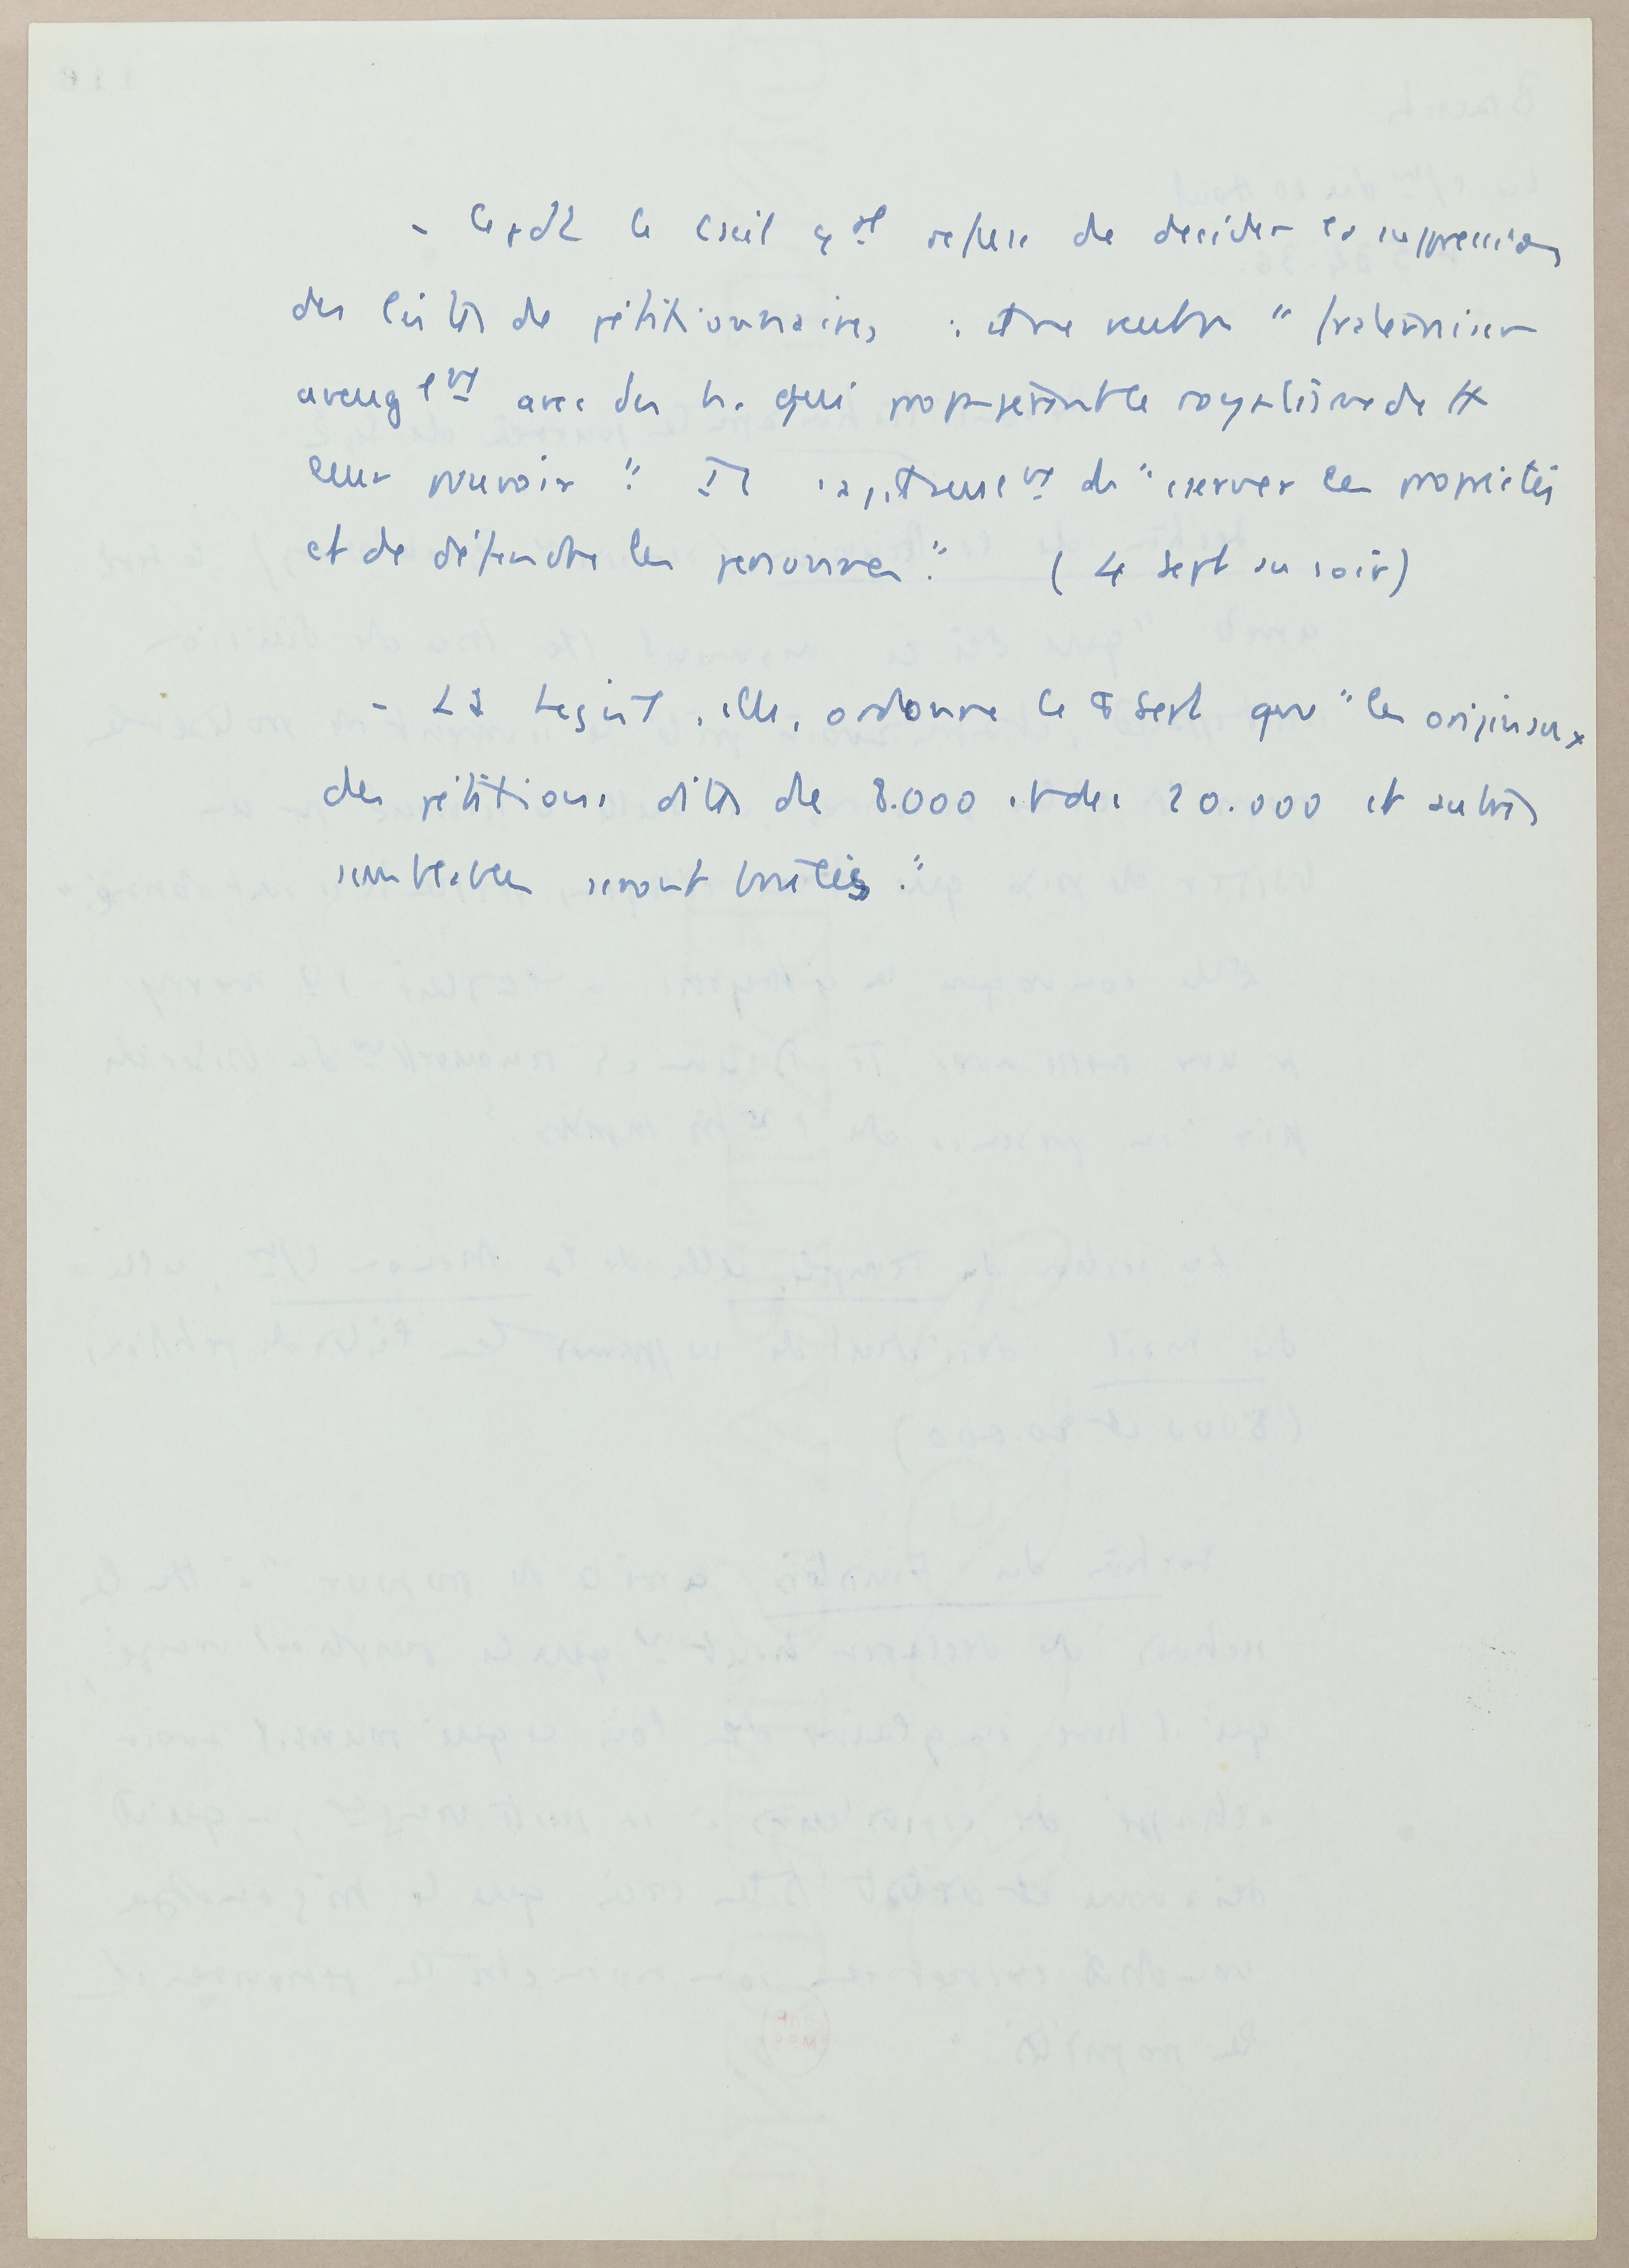 - Cepdt le Cseil gal refuse de decider la suppression
des listes de pétitionnaires, : et ne veut pas " fraterniser
aveuglement avec des h. qui
leur pouvoir ". Il de "cserver les propriétés
et de défendre les personnes." ( 4 Sept au soir)
- La Legist, elle, ordonne le 8 Sept que " les originaux
des pétitions dites de 8.000 et des 20.000 et autres
semblables seront brûlés."